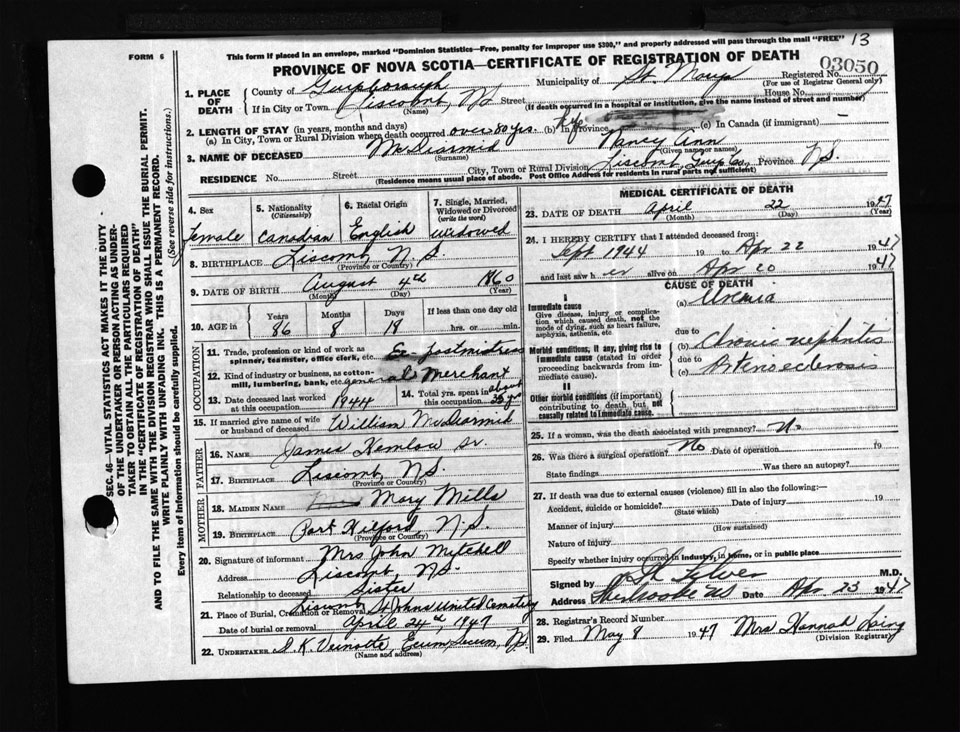 This form if placed in an envelope, marked "Dominion Statistics—Free, penalty for improper use $300," and properly addressed will pass through the mail "FREE" 13
FORM 6
PROVINCE OF NOVA SCOTIA—CERTIFICATE OF REGISTRATION OF DEATH
03050
1. PLACE OF DEATH County of Guysborough Municipality of St. Marys Registered No.
(For use of Registrar General only)
If in City or Town Liscomb, NS Street House No.
(Name) (If death occurred in a hospital or institution, give the name instead of street and number)
2. LENGTH OF STAY (in years, months and days)
(a) In City, Town or Rural Division where death occurred over 80 yrs. (b) In Province (c) In Canada (if immigrant)
3. NAME OF DECEASED McDiarmid Nancy Ann
(Surname) (Given name or names)
RESIDENCE No. Street City, Town or Rural Division Liscomb, Guys Co., Province N.S.
(Residence means usual place of abode. Post Office Address for residents in rural parts not sufficient)
SEC. 46—VITAL STATISTICS ACT MAKES IT THE DUTY
OF THE UNDERTAKER OR PERSON ACTING AS UNDER-
TAKER TO OBTAIN ALL THE PARTICULARS REQUIRED
IN THE "CERTIFICATE OF REGISTRATION OF DEATH"
AND TO FILE THE SAME WITH THE DIVISION REGISTRAR WHO SHALL ISSUE THE BURIAL PERMIT.
WRITE PLAINLY WITH UNFADING INK. THIS IS A PERMANENT RECORD.
Every item of Information should be carefully supplied. (See reverse side for instructions.)
4. Sex 5. Nationality (Citizenship) 6. Racial Origin 7. Single, Married, Widowed or Divorced (write the word)
Female Canadian English widowed
8. BIRTHPLACE Liscomb, N.S.
(Province or Country)
9. DATE OF BIRTH August 4th 1860
(Month) (Day) (Year)
10. AGE in Years Months Days If less than one day old
86 8 18 hrs. or min.
OCCUPATION
11. Trade, profession or kind of work as spinner, teamster, office clerk, etc. Ex Postmistress
12. Kind of industry or business, as cotton-mill, lumbering, bank, etc. general Merchant
13. Date deceased last worked at this occupation 1944 14. Total yrs. spent in this occupation about 35 yrs
15. If married give name of wife or husband of deceased William McDiarmid
FATHER
16. NAME James Hemlow Sr.
17. BIRTHPLACE Liscomb, N.S.
(Province or Country)
MOTHER
18. MAIDEN NAME Mary Mills
19. BIRTHPLACE Port Hilford, N.S.
(Province or Country)
20. Signature of informant Mrs John Mitchell
Address Liscomb, N.S.
Relationship to deceased Sister
21. Place of Burial, Cremation or Removal Liscomb St Johns United Cemetery
Date of burial or removal April 24th 1947
22. UNDERTAKER S.K. Veinotte, Ecum Secum, N.S.
(Name and address)
MEDICAL CERTIFICATE OF DEATH
23. DATE OF DEATH April 22 1947
(Month) (Day) (Year)
24. I HEREBY CERTIFY that I attended deceased from:
Sept 1944 19 to Apr 22 1947
and last saw her alive on Apr 20 1947
CAUSE OF DEATH
I
Immediate cause
Give disease, injury or complication which caused death, not the mode of dying, such as heart failure, asphyxia, asthenia, etc.
(a) Uremia
due to
Morbid conditions, if any, giving rise to immediate cause (stated in order proceeding backwards from immediate cause).
(b) Chronic nephritis
due to
(c) Arterioscelrosis
II
Other morbid conditions (if important) contributing to death but not causally related to immediate cause.
25. If a woman, was the death associated with pregnancy? No
26. Was there a surgical operation? No Date of operation 19
State findings Was there an autopsy?
27. If death was due to external causes (violence) fill in also the following:—
Accident, suicide or homicide? Date of injury 19
(State which)
Manner of injury
(How sustained)
Nature of injury
Specify whether injury occurred in industry, in home, or in public place
Signed by M.D.
Address Sherbrooke NS Date Apr 23 1947
28. Registrar's Record Number
29. Filed May 8 1947 Mrs Hannah Laing
(Division Registrar)